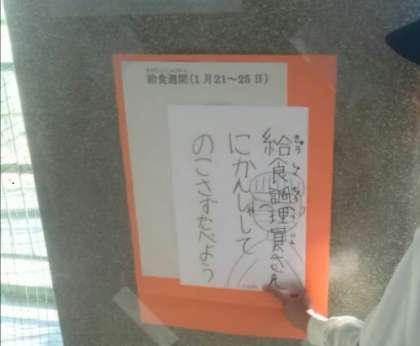 給食週間(1月21～25日)
給食調理員さん
にかんしゃして
のこさずたべよう